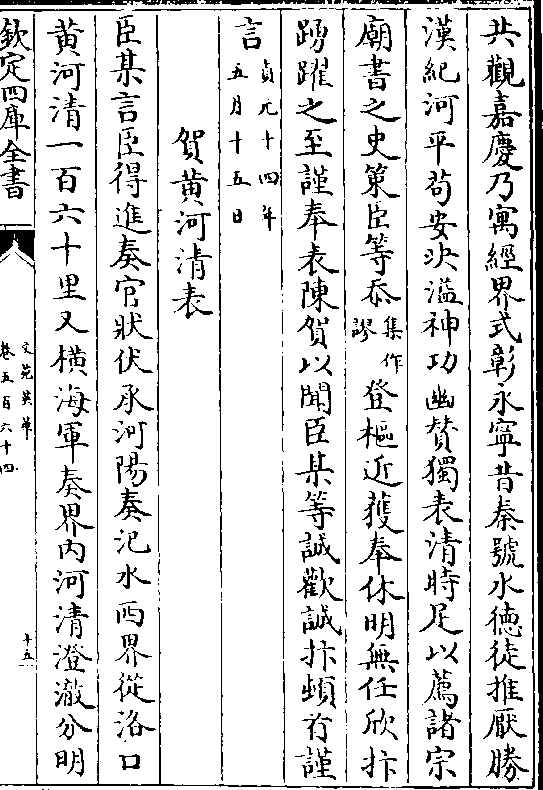 共觀嘉慶乃寓經界式彰永寧昔秦號水德徒推厭勝
漢紀河平苟安決溢神功幽贊獨表清時足以薦諸宗
廟書之史策臣等忝集作謬登樞近獲奉休明無任欣抃
踴躍之至謹奉表陳賀以聞臣某等誠歡誠抃頓首謹
言貞元十四年五月十五日
賀黄河清表
臣某言臣得進奏官狀伏承河陽奏汜水西界從洛口
黄河清一百六十里又橫海軍奏界内河清澄澈分明
欽定四庫全書
文苑英華
卷五百六十四
十五